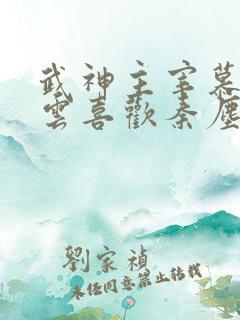 武神主宰慕
雲喜歡秦塵
劉家禎
未经同意禁止转载